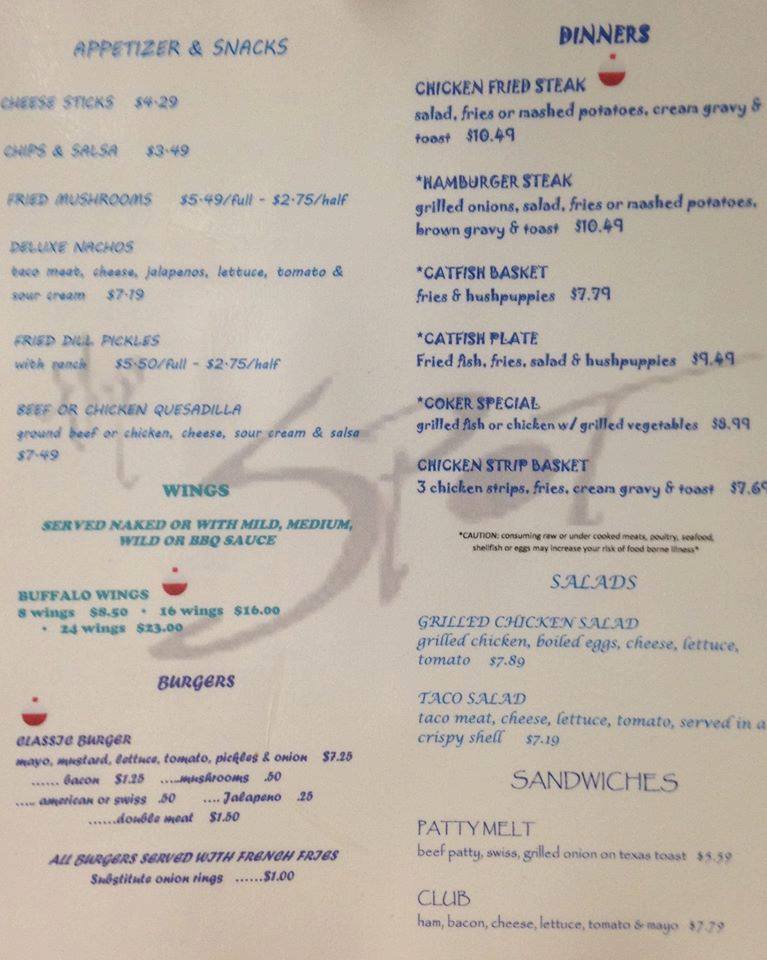 APPETIZER & SNACKS
CHEESE STICKS $4.29
CHIPS & SALSA $3.49
FRIED MUSHROOMS $5.49/full - $2.75/half
DELUXE NACHOS
taco meat, cheese, jalapenos, lettuce, tomato &
sour cream $7.19
FRIED DILL PICKLES
with ranch $5.50/full - $2.75/half
BEEF OR CHICKEN QUESADILLA
ground beef or chicken, cheese, sour cream & salsa
$7.49
WINGS
SERVED NAKED OR WITH MILD, MEDIUM,
WILD OR BBQ SAUCE
BUFFALO WINGS
8 wings $8.50 • 16 wings $16.00
• 24 wings $23.00
BURGERS
CLASSIC BURGER
mayo, mustard, lettuce, tomato, pickles & onion $7.25
...... bacon $1.25 .....mushrooms .50
..... american or swiss .50 .... Jalapeno .25
......double meat $1.50
ALL BURGERS SERVED WITH FRENCH FRIES
Substitute onion rings ......$1.00
DINNERS
CHICKEN FRIED STEAK
salad, fries or mashed potatoes, cream gravy &
toast $10.49
*HAMBURGER STEAK
grilled onions, salad, fries or mashed potatoes,
brown gravy & toast $10.49
*CATFISH BASKET
fries & hushpuppies $7.79
*CATFISH PLATE
Fried fish, fries, salad & hushpuppies $9.49
*COKER SPECIAL
grilled fish or chicken w/ grilled vegetables $8.99
CHICKEN STRIP BASKET
3 chicken strips, fries, cream gravy & toast $7.69
*CAUTION: consuming raw or under cooked meats, poultry, seafood,
shellfish or eggs may increase your risk of food borne illness*
SALADS
GRILLED CHICKEN SALAD
grilled chicken, boiled eggs, cheese, lettuce,
tomato $7.89
TACO SALAD
taco meat, cheese, lettuce, tomato, served in a
crispy shell $7.19
SANDWICHES
PATTY MELT
beef patty, swiss, grilled onion on texas toast $5.59
CLUB
ham, bacon, cheese, lettuce, tomato & mayo $7.79
SPOT